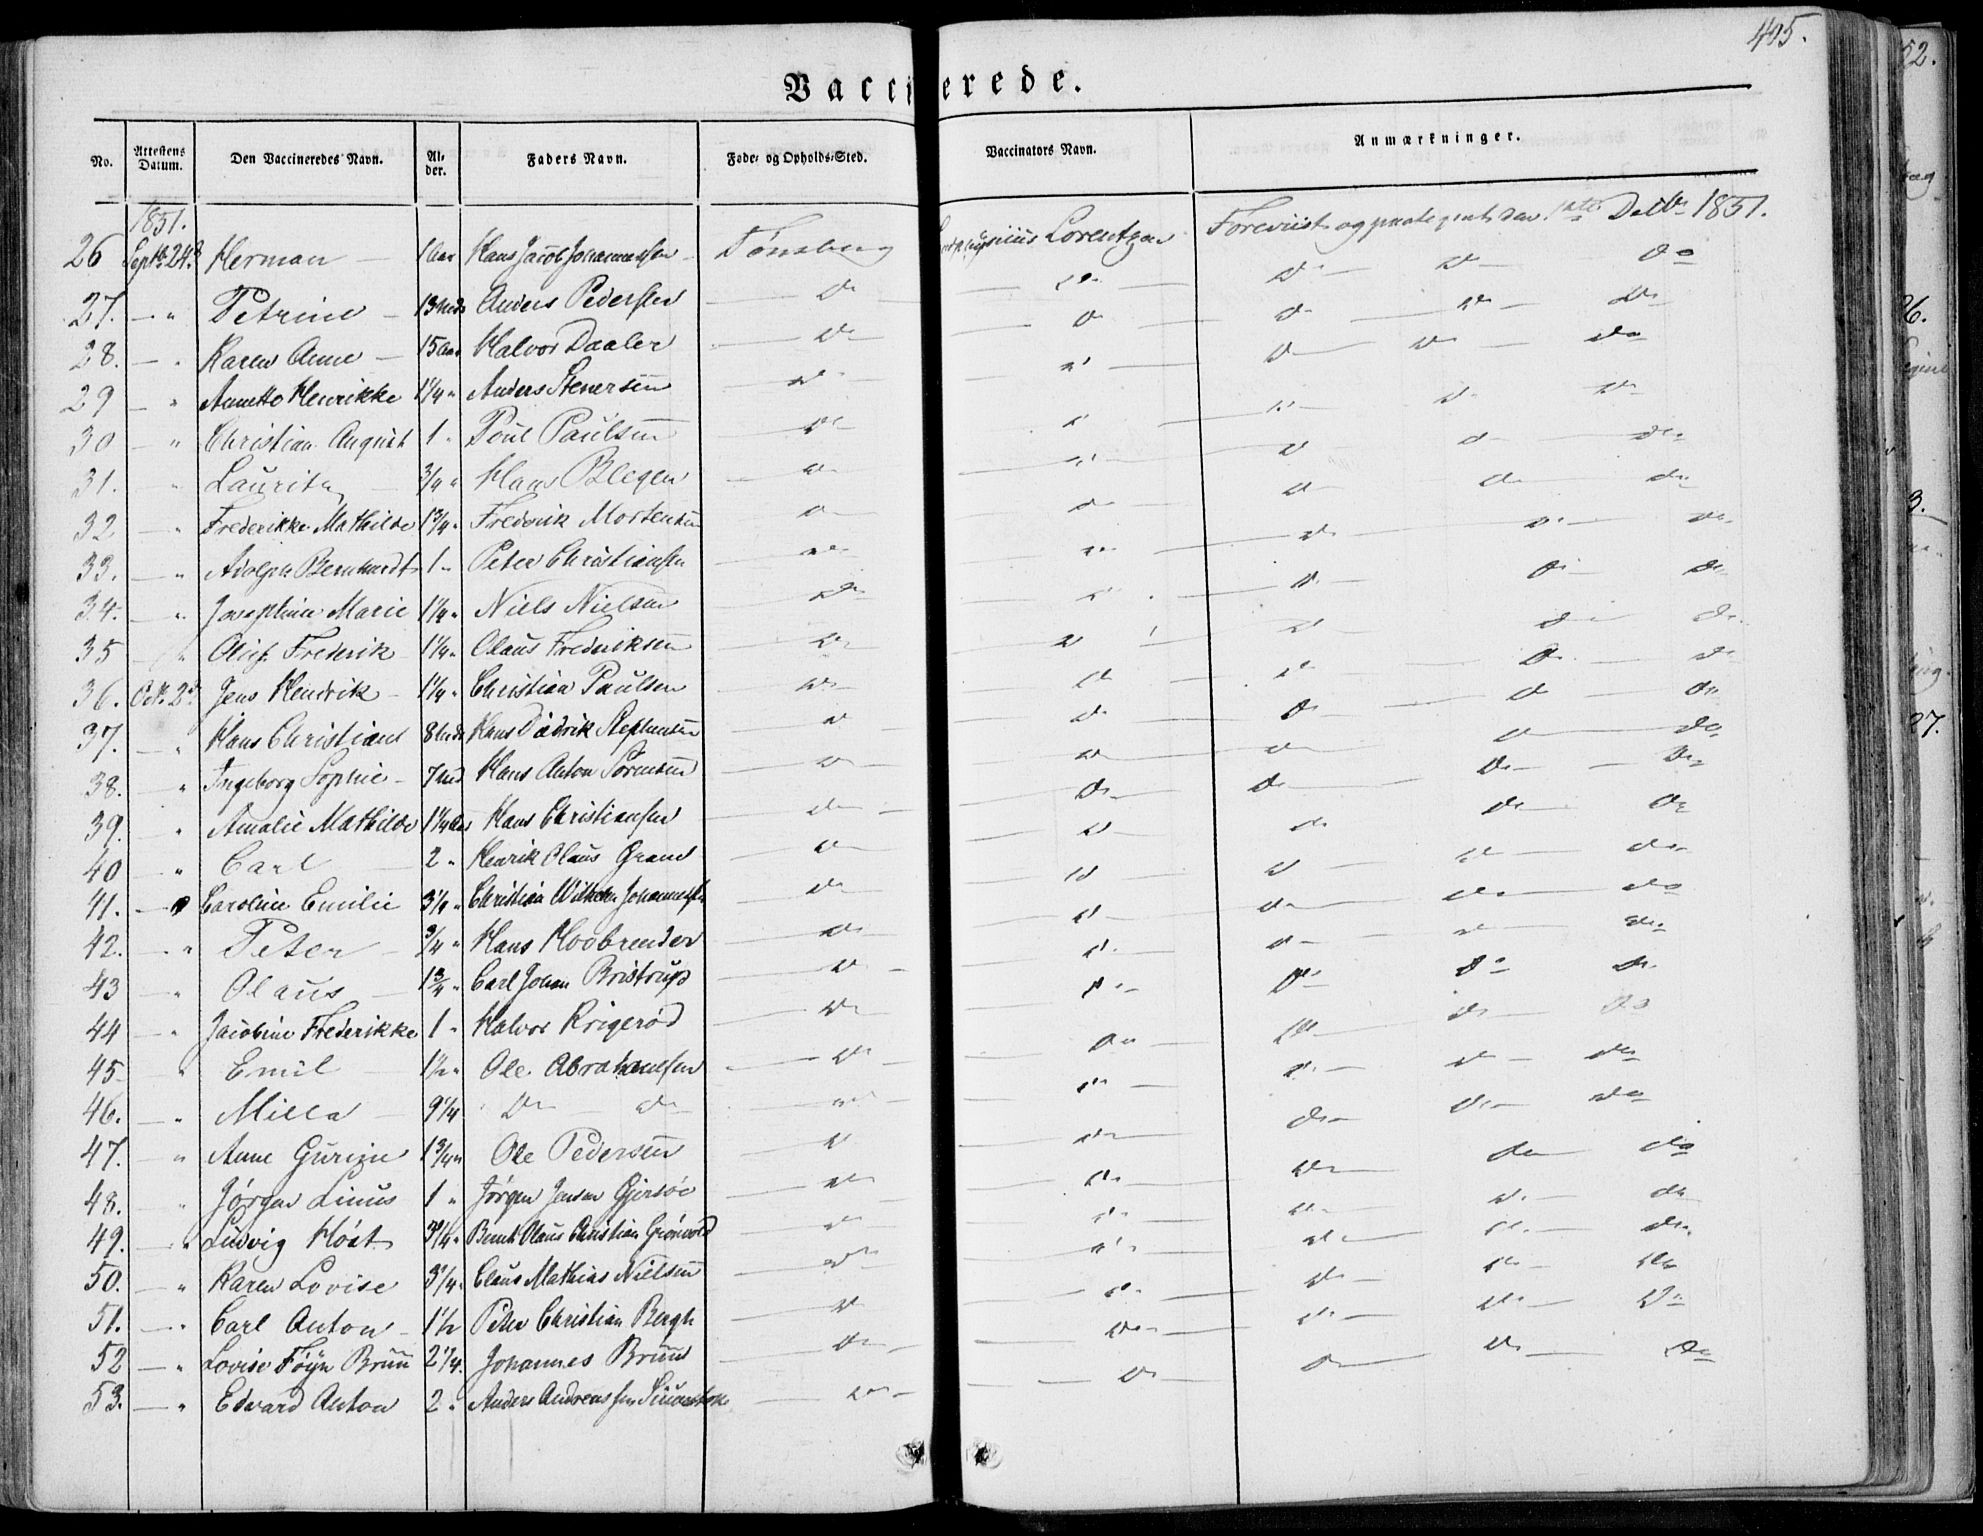 405.
Vaccinerede.
No. Attestens Datum. Den Vaccineredes Navn. Alder. Faders Navn. Føde- og Opholds-Sted. Vaccinators Navn. Anmærkninger.
1851.
26 Septbr 24de Herman 1 Aar Hans Jacob Johannessen Tønsberg Lorentzen Foreviist og den 1ste Decbr 1851.
27. " Petrine 13 Mdr Anders Pedersen do do do do do
28. " Karen Anne 15 Aar Halvor Daaler do do do do do
29 " Annette Henrikke 1 1/4 " Anders Stenersen do do do do do
30 " Christian August 1 " Poul Paulsen do do do do do
31. " Lauritz 3/4 " Hans Blegen do do do do do
32. " Frederikke Mathilde 1 3/4 " Frederik Mortensen do do do do do
33. " Adolph Bernhardt 1 " Peter Christiansen do do do do do
34. " Josephine Marie 1 1/4 " Niels Nielsen do do do do do
35 " Oluf Frederik 1 1/4 " Olaus Frederiksen do do do do do
36. Oct. 2d Jens Hendrik 1 1/4 " Christian Paulsen do do do do do
37. " Hans Christian 8 Mdr Hans Didrik Stephensen do do do do do
38. " Ingeborg Sophie 7 Md Hans Anton Sørensen do do do do do
39. " Amalie Mathilde 1 1/4 Aar Hans Christiansen do do do do do
40 " Carl 2 " Henrik Olaus do do do do do
41. " Caroline Emilie 3 1/4 " Christian Wilhelm Johannessen do do do do do
42. " Peter 3/4 " Hans Hoobrender do do do do do
43 " Olaus 1 3/4 " Carl Johan Bristrup do do do do do
44 " Jacobine Frederikke 1 " Halvor Krigerød do do do do do
45 " Emil 1 1/2 " Ole Abrahamsen do do do do do
46. " Milla 9 1/4 do do do do do do do
47. " Anne Gurine 1 3/4 " Ole Pedersen do do do do do
48. " Jørgen Linus 1 " Jørgen Jensen Gjersøe do do do do do
49. " Ludvig Høst 3/4 " Bernt Olaus Christian Grønvold do do do do do
50. " Karen Lovise 3 1/4 " Claus Mathias Nielsen do do do do do
51. " Carl Anton 1 1/2 Peter Christian Bergh do do do do do
52 " Lovise Føyn Bruun 2 1/4 " Johannes Bruun do do do do do
53. " Edvard Anton 2 " Anders Andreassen do